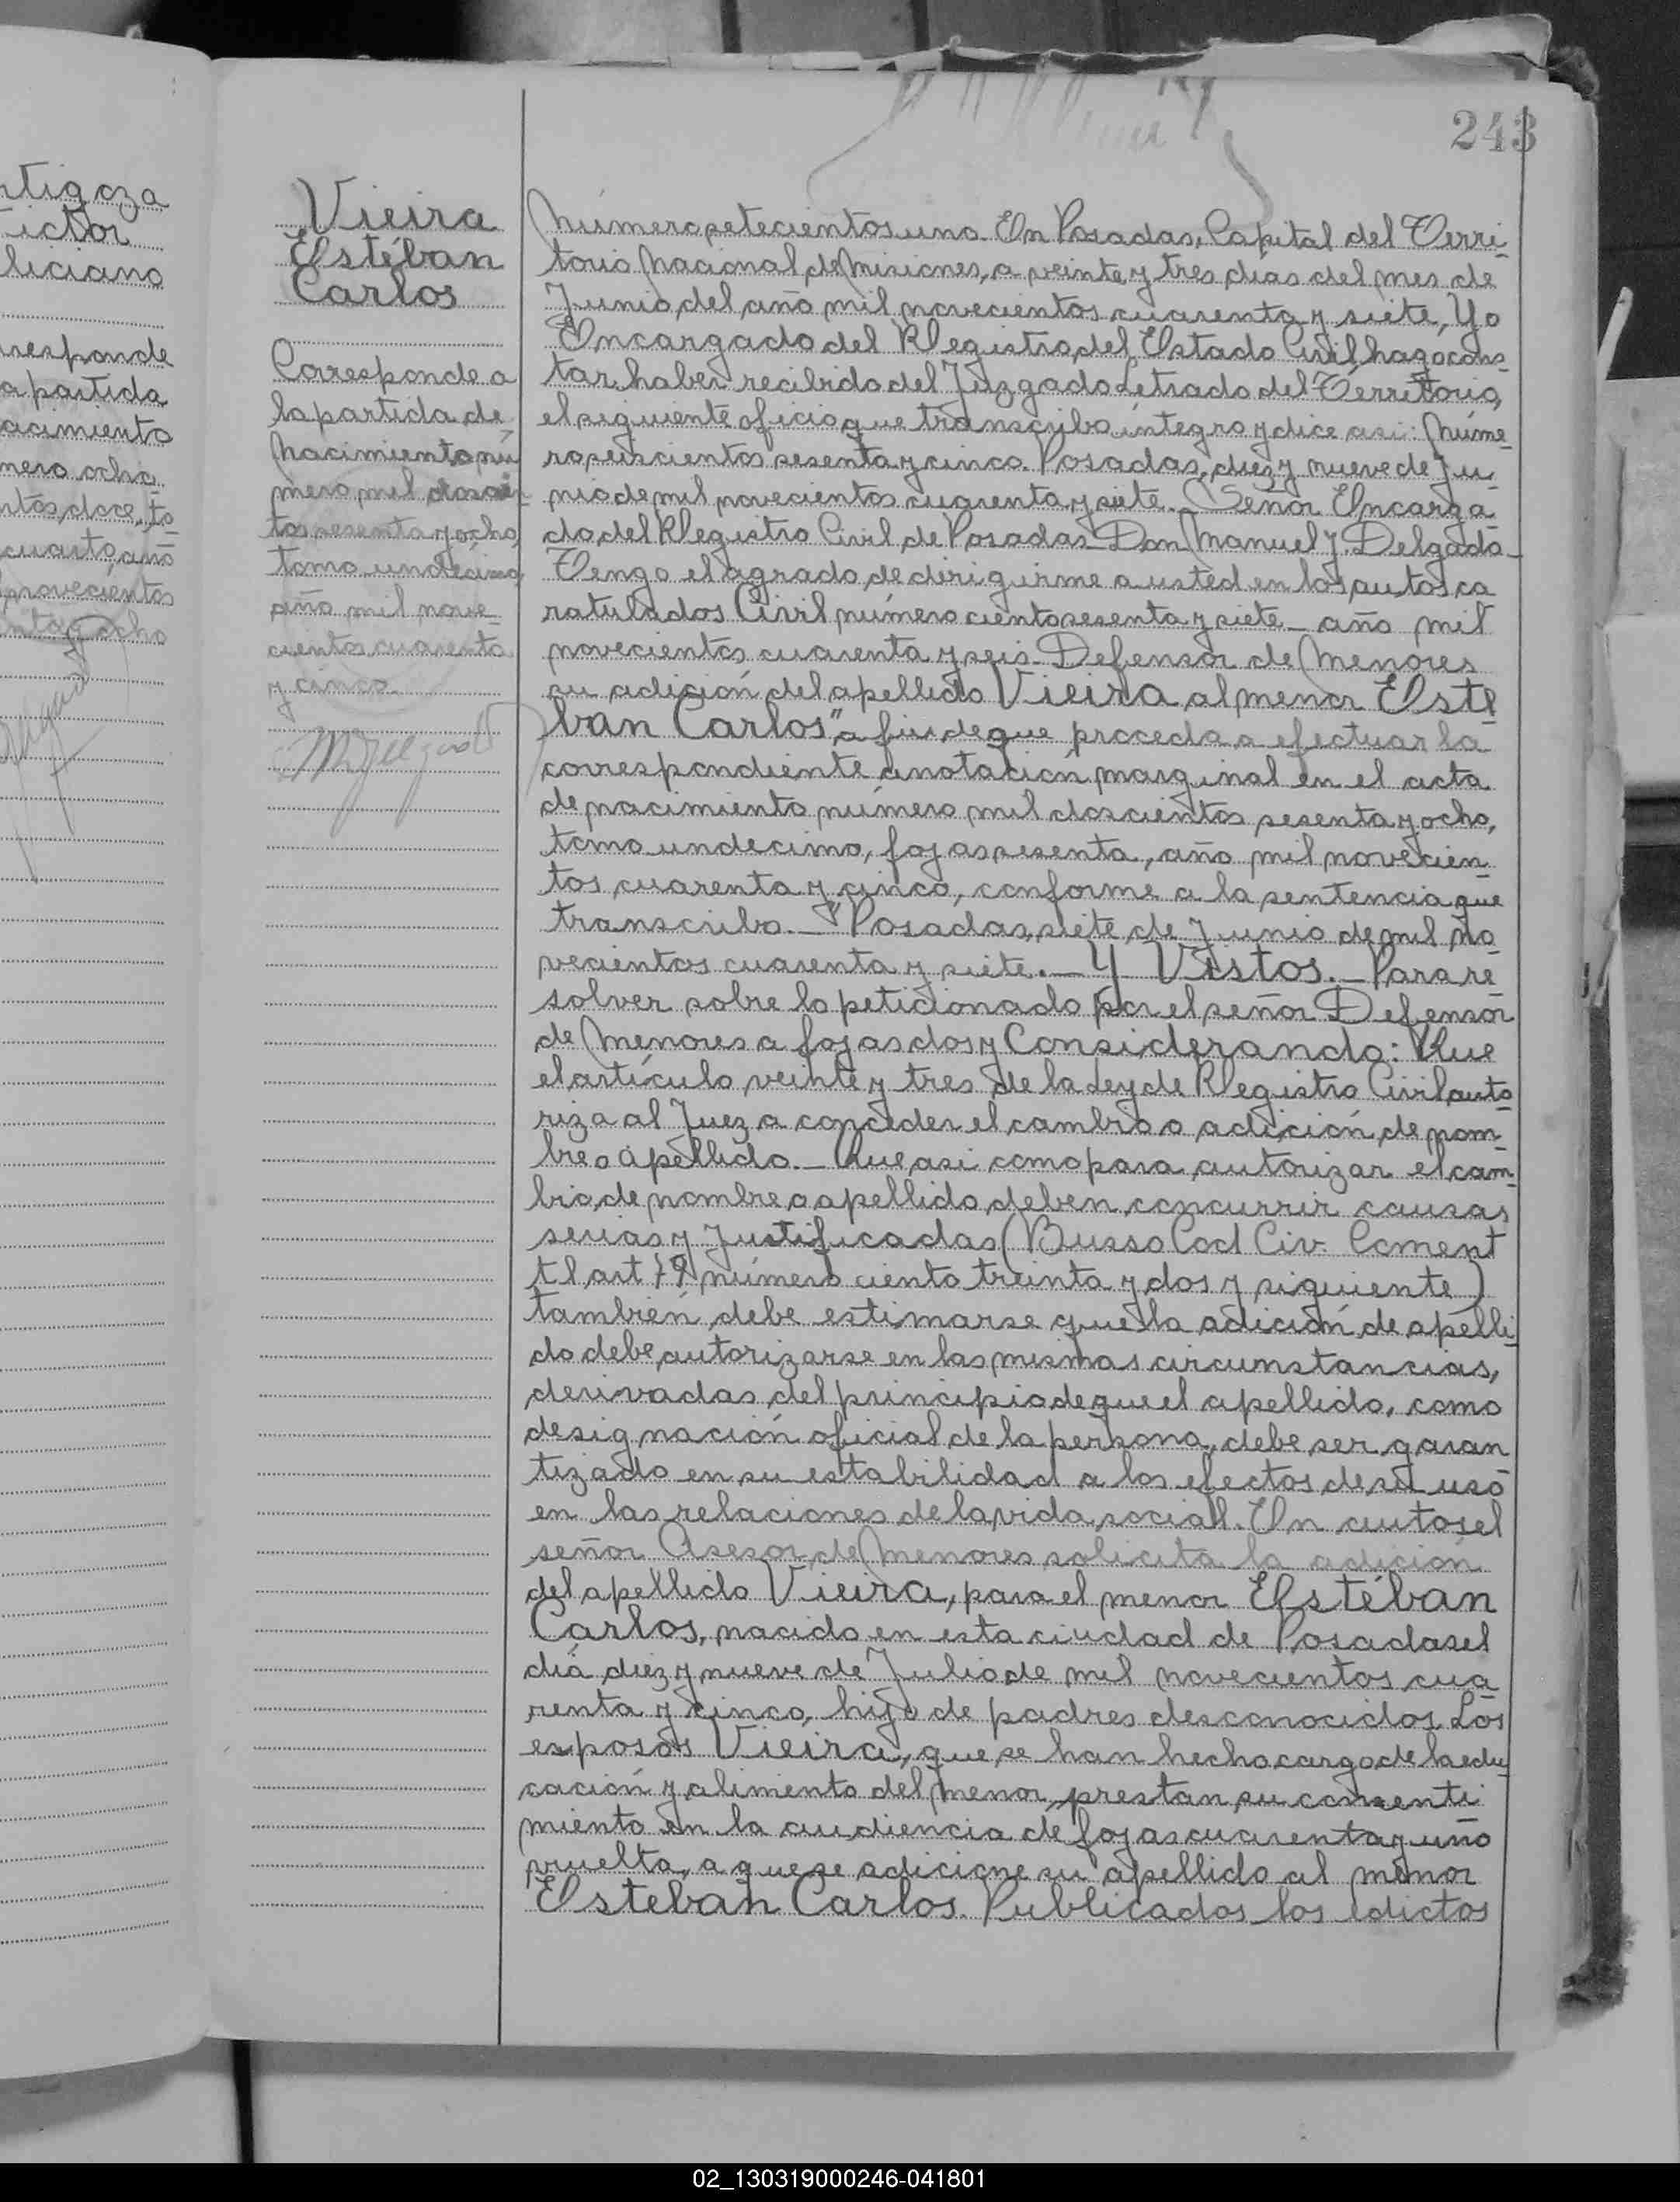 243
ntigoza
ictor
liciano
responde
a partida
acimiento
mero ocho
ntos doce, to
cuarto, año
novecientos
enta y ocho
Vieira
Estéban
Carlos
Corresponde a
la partida de
nacimiento nú
mero mil doscien
tos sesenta y ocho,
tomo undécimo,
año mil nove-
cientos cuarenta
y cinco.
Número setecientos uno. En Posadas, Capital del Terri-
torio Nacional de Misiones, a veinte y tres dias del mes de
Junio del año mil novecientos cuarenta y siete, Yo
Encargado del Registro del Estado Civil hago cons-
tar haber recibido del Juzgado Letrado del Território,
el siguiente oficio que transcribo íntegro y dice asi: Núme-
ro seiscientos sesenta y cinco. Posadas, diez y nueve de Ju-
nio de mil novecientos cuarenta y siete. Señor Encarga-
do del Registro Civil de Posadas Don Manuel J. Delgado-
Tengo el agrado de dirigirme a usted en los autos ca
ratulados Civil número ciento sesenta y siete - año mil
novecientos cuarenta y seis - Defensor de Menores
su adición del apellido Vieira al menor Este-
ban Carlos" a fin de que proceda a efectuar la
correspondiente anotación marginal en el acta
de nacimiento número mil doscientos sesenta y ocho,
tomo undecimo, fojas sesenta, año mil novecien-
tos cuarenta y cinco, conforme a la sentencia que
transcribo. - "Posadas, siete de Junio de mil no-
vecientos cuarenta y siete. - Y Vistos. - Para re-
solver sobre lo peticionado por el señor Defensor
de Menores a fojas dos y Considerando: Que
el artículo veinte y tres de la Ley de Registro Civil auto-
riza al Juez a conceder el cambio o adición de nom-
bre o apellido. - Que asi como para autorizar el cam-
bio de nombre o apellido deben concurrir causas
serias y Justificadas (Busso Cod Civ. Coment
t1 art 79 número ciento treinta y dos y siguiente)
también debe estimarse que la adición de apelli-
do debe autorizarse en las mismas circunstancias,
derivadas del principio de que el apellido, como
designación oficial de la persona, debe ser garan
tizado en su estabilidad a los efectos de su uso
en las relaciones de la vida social. En autos el
señor Asesor de Menores solicita la adición
del apellido Vieira, para el menor Estéban
Carlos, nacido en esta ciudad de Posadas el
diá diez y nueve de Julio de mil novecientos cua-
renta y cinco, hijo de padres desconocidos. Los
esposos Vieira, que se han hecho cargo de la edu-
cación y alimento del menor, prestan su consenti
miento en la audiencia de fojas cuarenta y uno
vuelta, a que se adicione su apellido al menor
Esteban Carlos. Publicados los edictos
02_130319000246-041801